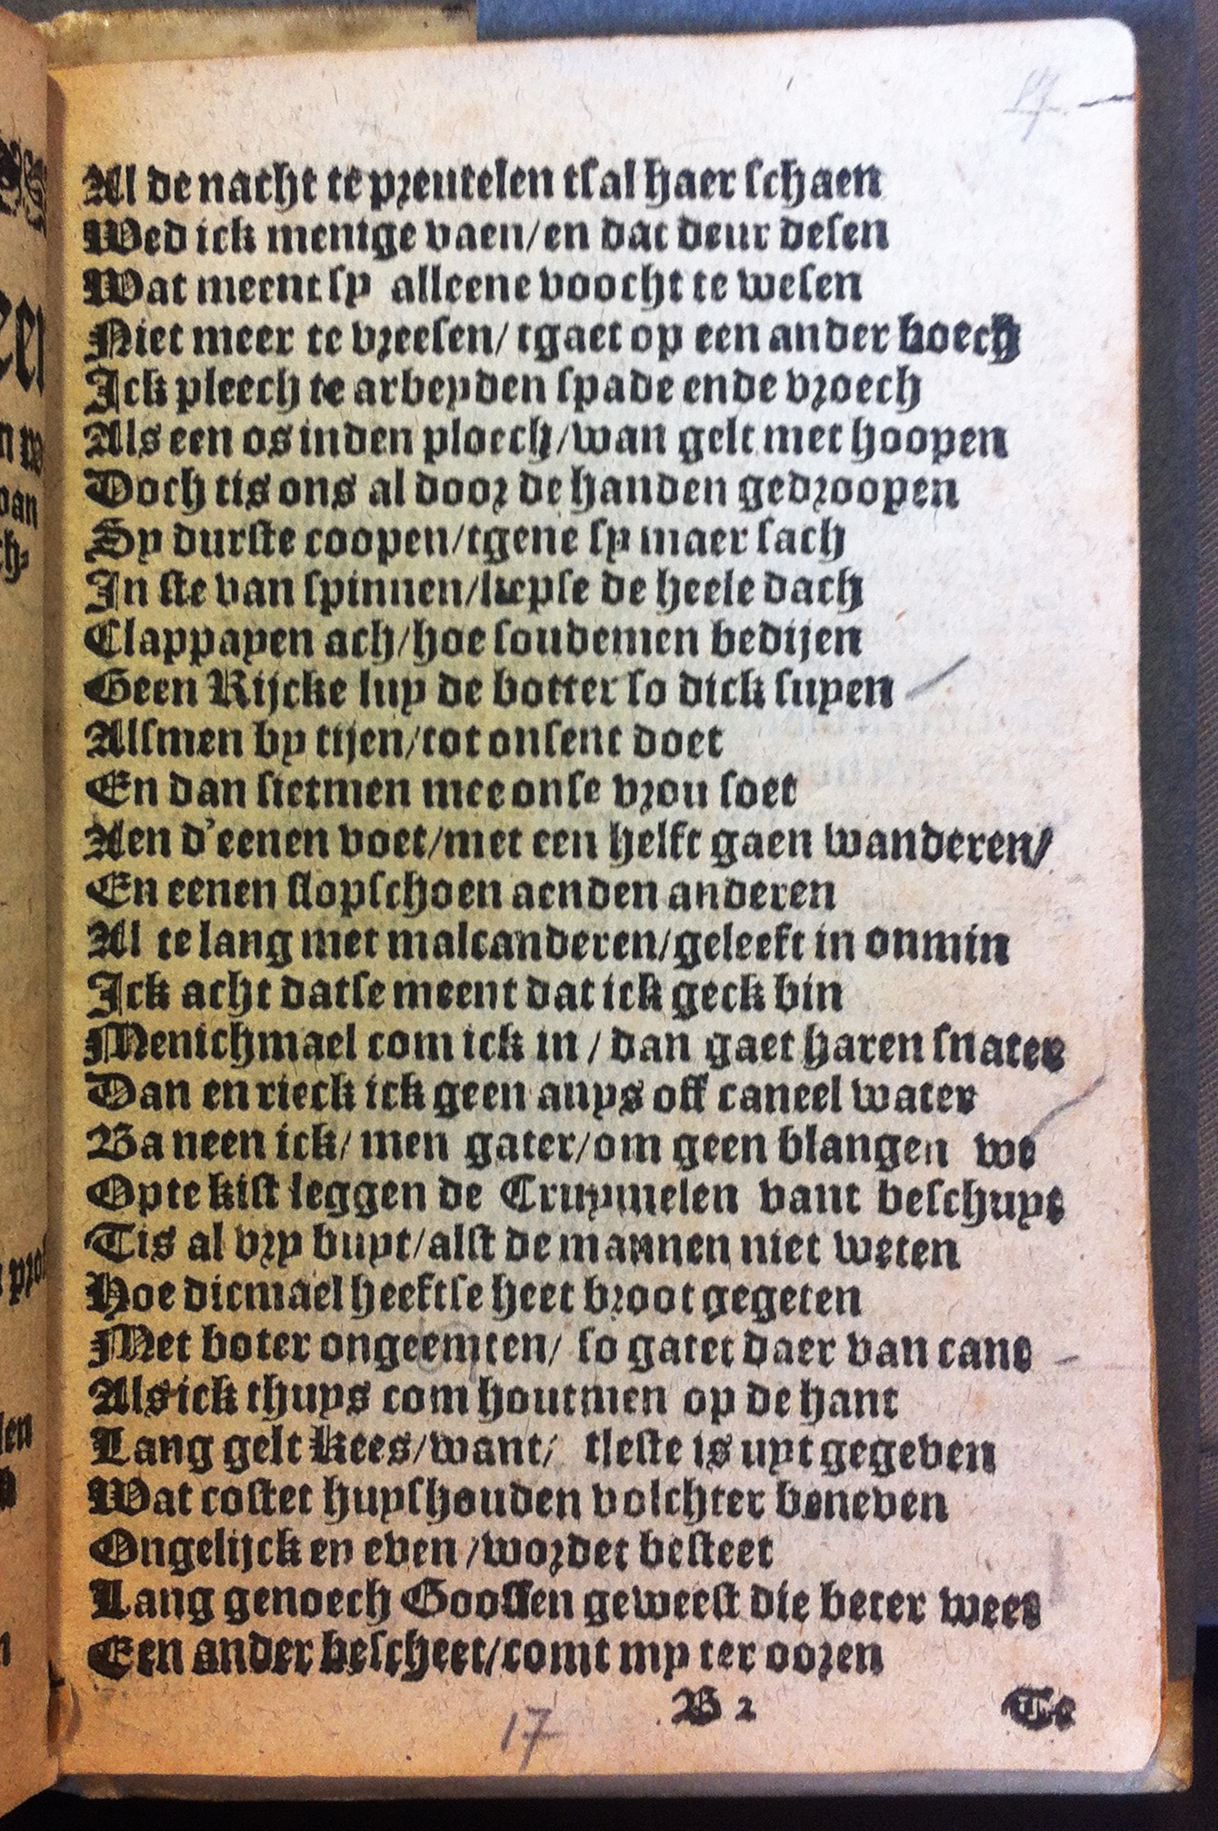 17
Al de nacht te preutelen tsal haer schaen
Wed ick menige vaen/en dat deur desen
Wat meent sy alleene voocht te wesen
Niet meer te vreesen/tgaet op een ander boech
Ick pleech te arbeyden spade ende vroech
Als een os inden ploech/wan gelt met hoopen
Doch tis ons al door de handen gedroopen
Sy durste coopen/tgene sy maer sach
In ste van spinnen/liepse de heele dach
Clappayen ach/hoe soudemen bedijen
Geen Rijcke luy de botter so dick suyen
Alsmen by tijen/tot onsent doet
En dan sietmen mee onse vrou soet
Aen d'eenen voet/met een helft gaen wanderen/
En eenen slopschoen aenden anderen
Al te lang met malcanderen/geleeft in onmin
Ick acht datse meent dat ick geck bin
Menichmael com ick in/dan gaet haren snater
Dan en rieck ick geen anys off caneel water
Ba neen ick/men gater/om geen blangen we
Opte kist leggen de Cruymelen vant beschuyt
Tis al vry buyt/alst de mannen niet weten
Hoe dicmael heeftse heet broot gegeten
Met boter ongeemten/so gatet daer van cant
Als ick thuys com houtmen op de hant
Lang gelt Kees/want/ tleste is uyt gegeven
Wat costet huyshouden volchter beneven
Ongelijck en even/wordet besteet
Lang genoech Goossen geweest die beter weet
Een ander bescheet/comt my ter ooren
B 2
Te
17